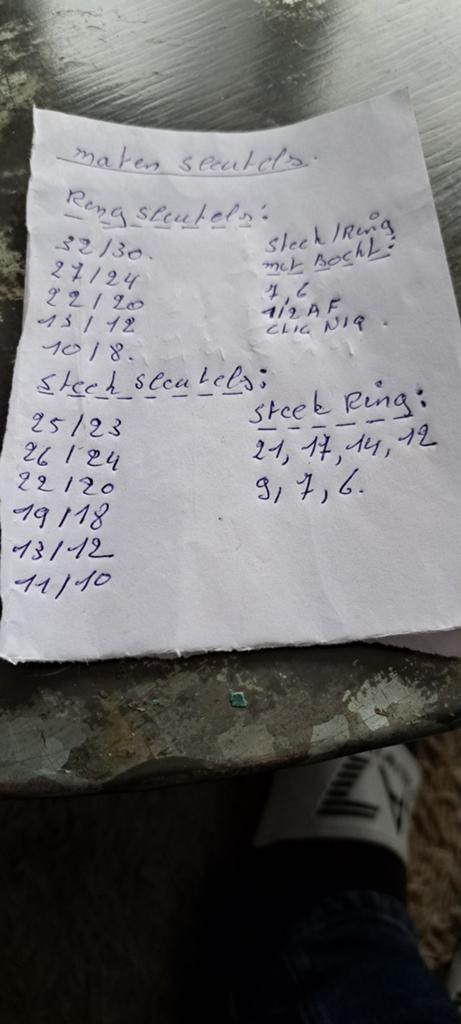 maten sleutels.
Ring sleutels:
32/30.
27/24
22/20
13/12
10/8.
Steek/Ring
met Bocht:
7,6
1/2 AF
Steek sleutels:
25/23
26/24
22/20
19/18
13/12
11/10
Steek Ring:
21, 17, 14, 12
9, 7, 6.